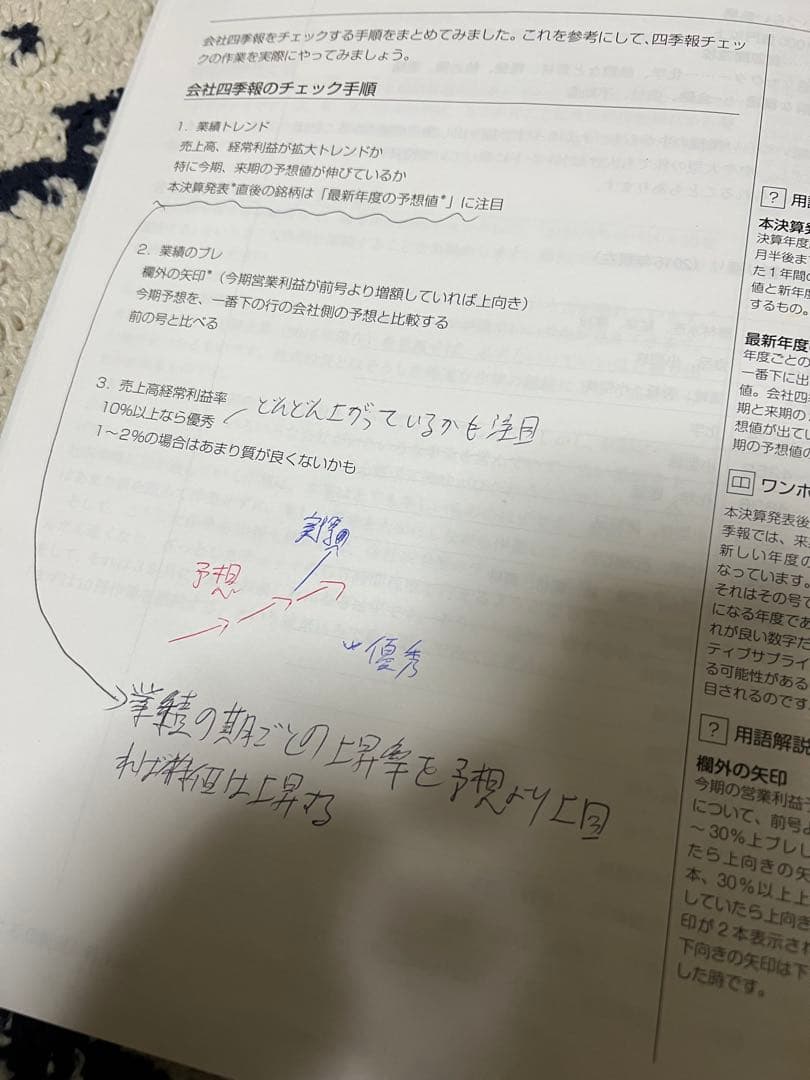 会社四季報をチェックする手順をまとめてみました。これを参考にして、四季報チェッ
クの作業を実際にやってみましょう。
会社四季報のチェック手順
1. 業績トレンド
売上高、経常利益が拡大トレンドか
特に今期、来期の予想値が伸びているか
本決算発表*直後の銘柄は「最新年度の予想値*」に注目
2. 業績のブレ
欄外の矢印*(今期営業利益が前号より増額していれば上向き)
今期予想を、一番下の行の会社側の予想と比較する
前の号と比べる
3. 売上高経常利益率
10%以上なら優秀
どんどん上がっているかも注目
1〜2%の場合はあまり質が良くないかも
実際
予想
優秀
業績の期ごとの上昇率を予想より上回
れば株価は上昇する
? 用
本決算発
決算年度
月半後ま
た1年間の
値と新年度
するもの。
最新年度の
年度ごとの
一番下に出
値。会社四
期と来期の
想値が出てい
期の予想値の
ワンポ
本決算発表後
季報では、来
新しい年度の
なっています。
それはその号で
になる年度であ
れが良い数字だ
ティブサプライ
る可能性がある
目されるのです
? 用語解説
欄外の矢印
今期の営業利益予
について、前号よ
〜30%上ブレし
たら上向きの矢
本、30%以上上
していたら上向き
印が2本表示され
下向きの矢印は下
した時です。